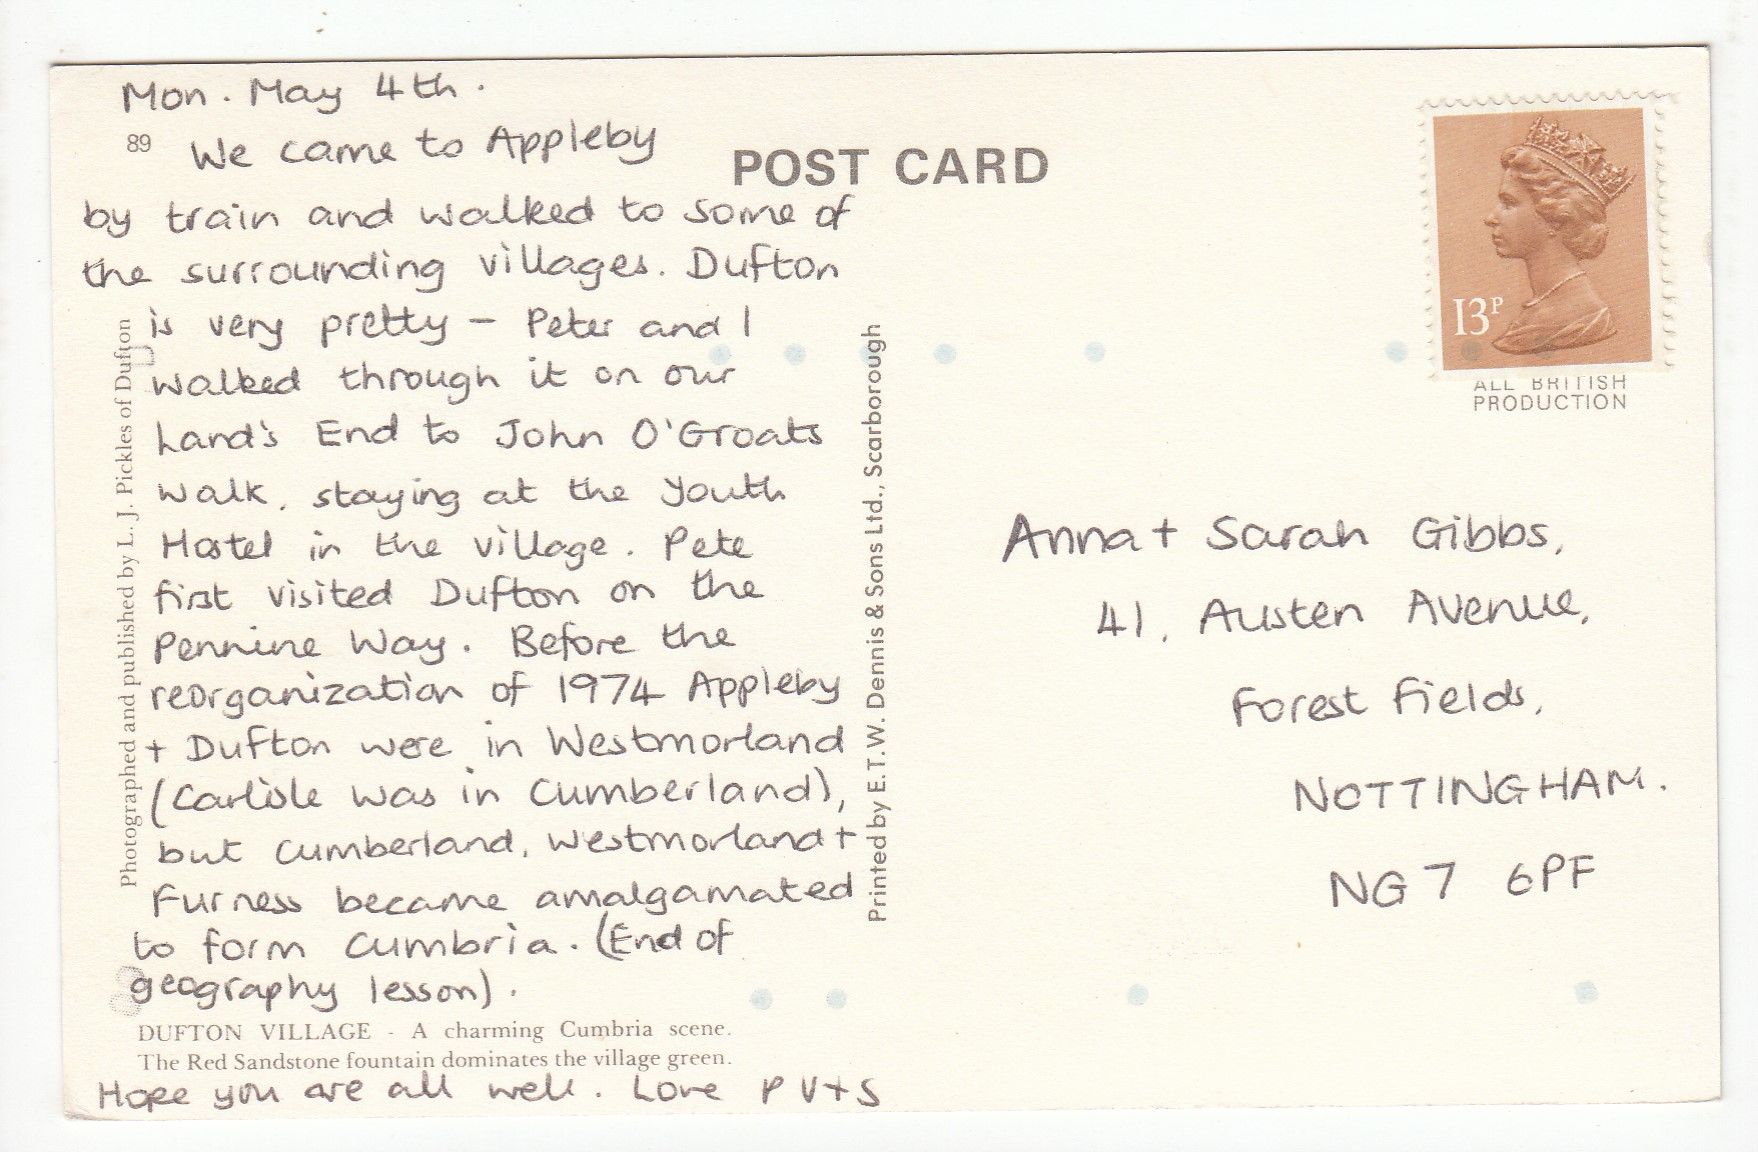 Mon. May 4th.
89
We came to Appleby
by train and walked to some of
the surrounding villages. Dufton
is very pretty – Peter and I
walked through it on our
Land's End to John O'Groats
walk, staying at the Youth
Hostel in the village. Pete
first visited Dufton on the
Pennine Way. Before the
reorganization of 1974 Appleby
+ Dufton were in Westmorland
(Carlisle was in Cumberland),
but Cumberland, Westmorland +
Furness became amalgamated
to form Cumbria. (End of
geography lesson).
DUFTON VILLAGE - A charming Cumbria scene.
The Red Sandstone fountain dominates the village green.
Hope you are all well. Love P V + S
Photographed and published by L. J. Pickles of Dufton
Printed by E.T.W. Dennis & Sons Ltd., Scarborough
POST CARD
13P
ALL BRITISH
PRODUCTION
Anna + Sarah Gibbs,
41, Austen Avenue,
Forest Fields,
NOTTINGHAM.
NG7 6PF